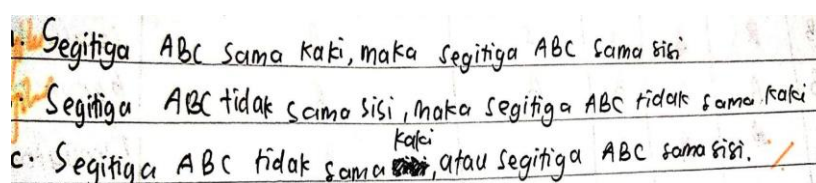 Segitiga ABC sama kaki, maka segitiga ABC sama sisi
Segitiga ABC tidak sama sisi, maka segitiga ABC tidak sama kaki
c. Segitiga ABC tidak sama kaki, atau segitiga ABC sama sisi.